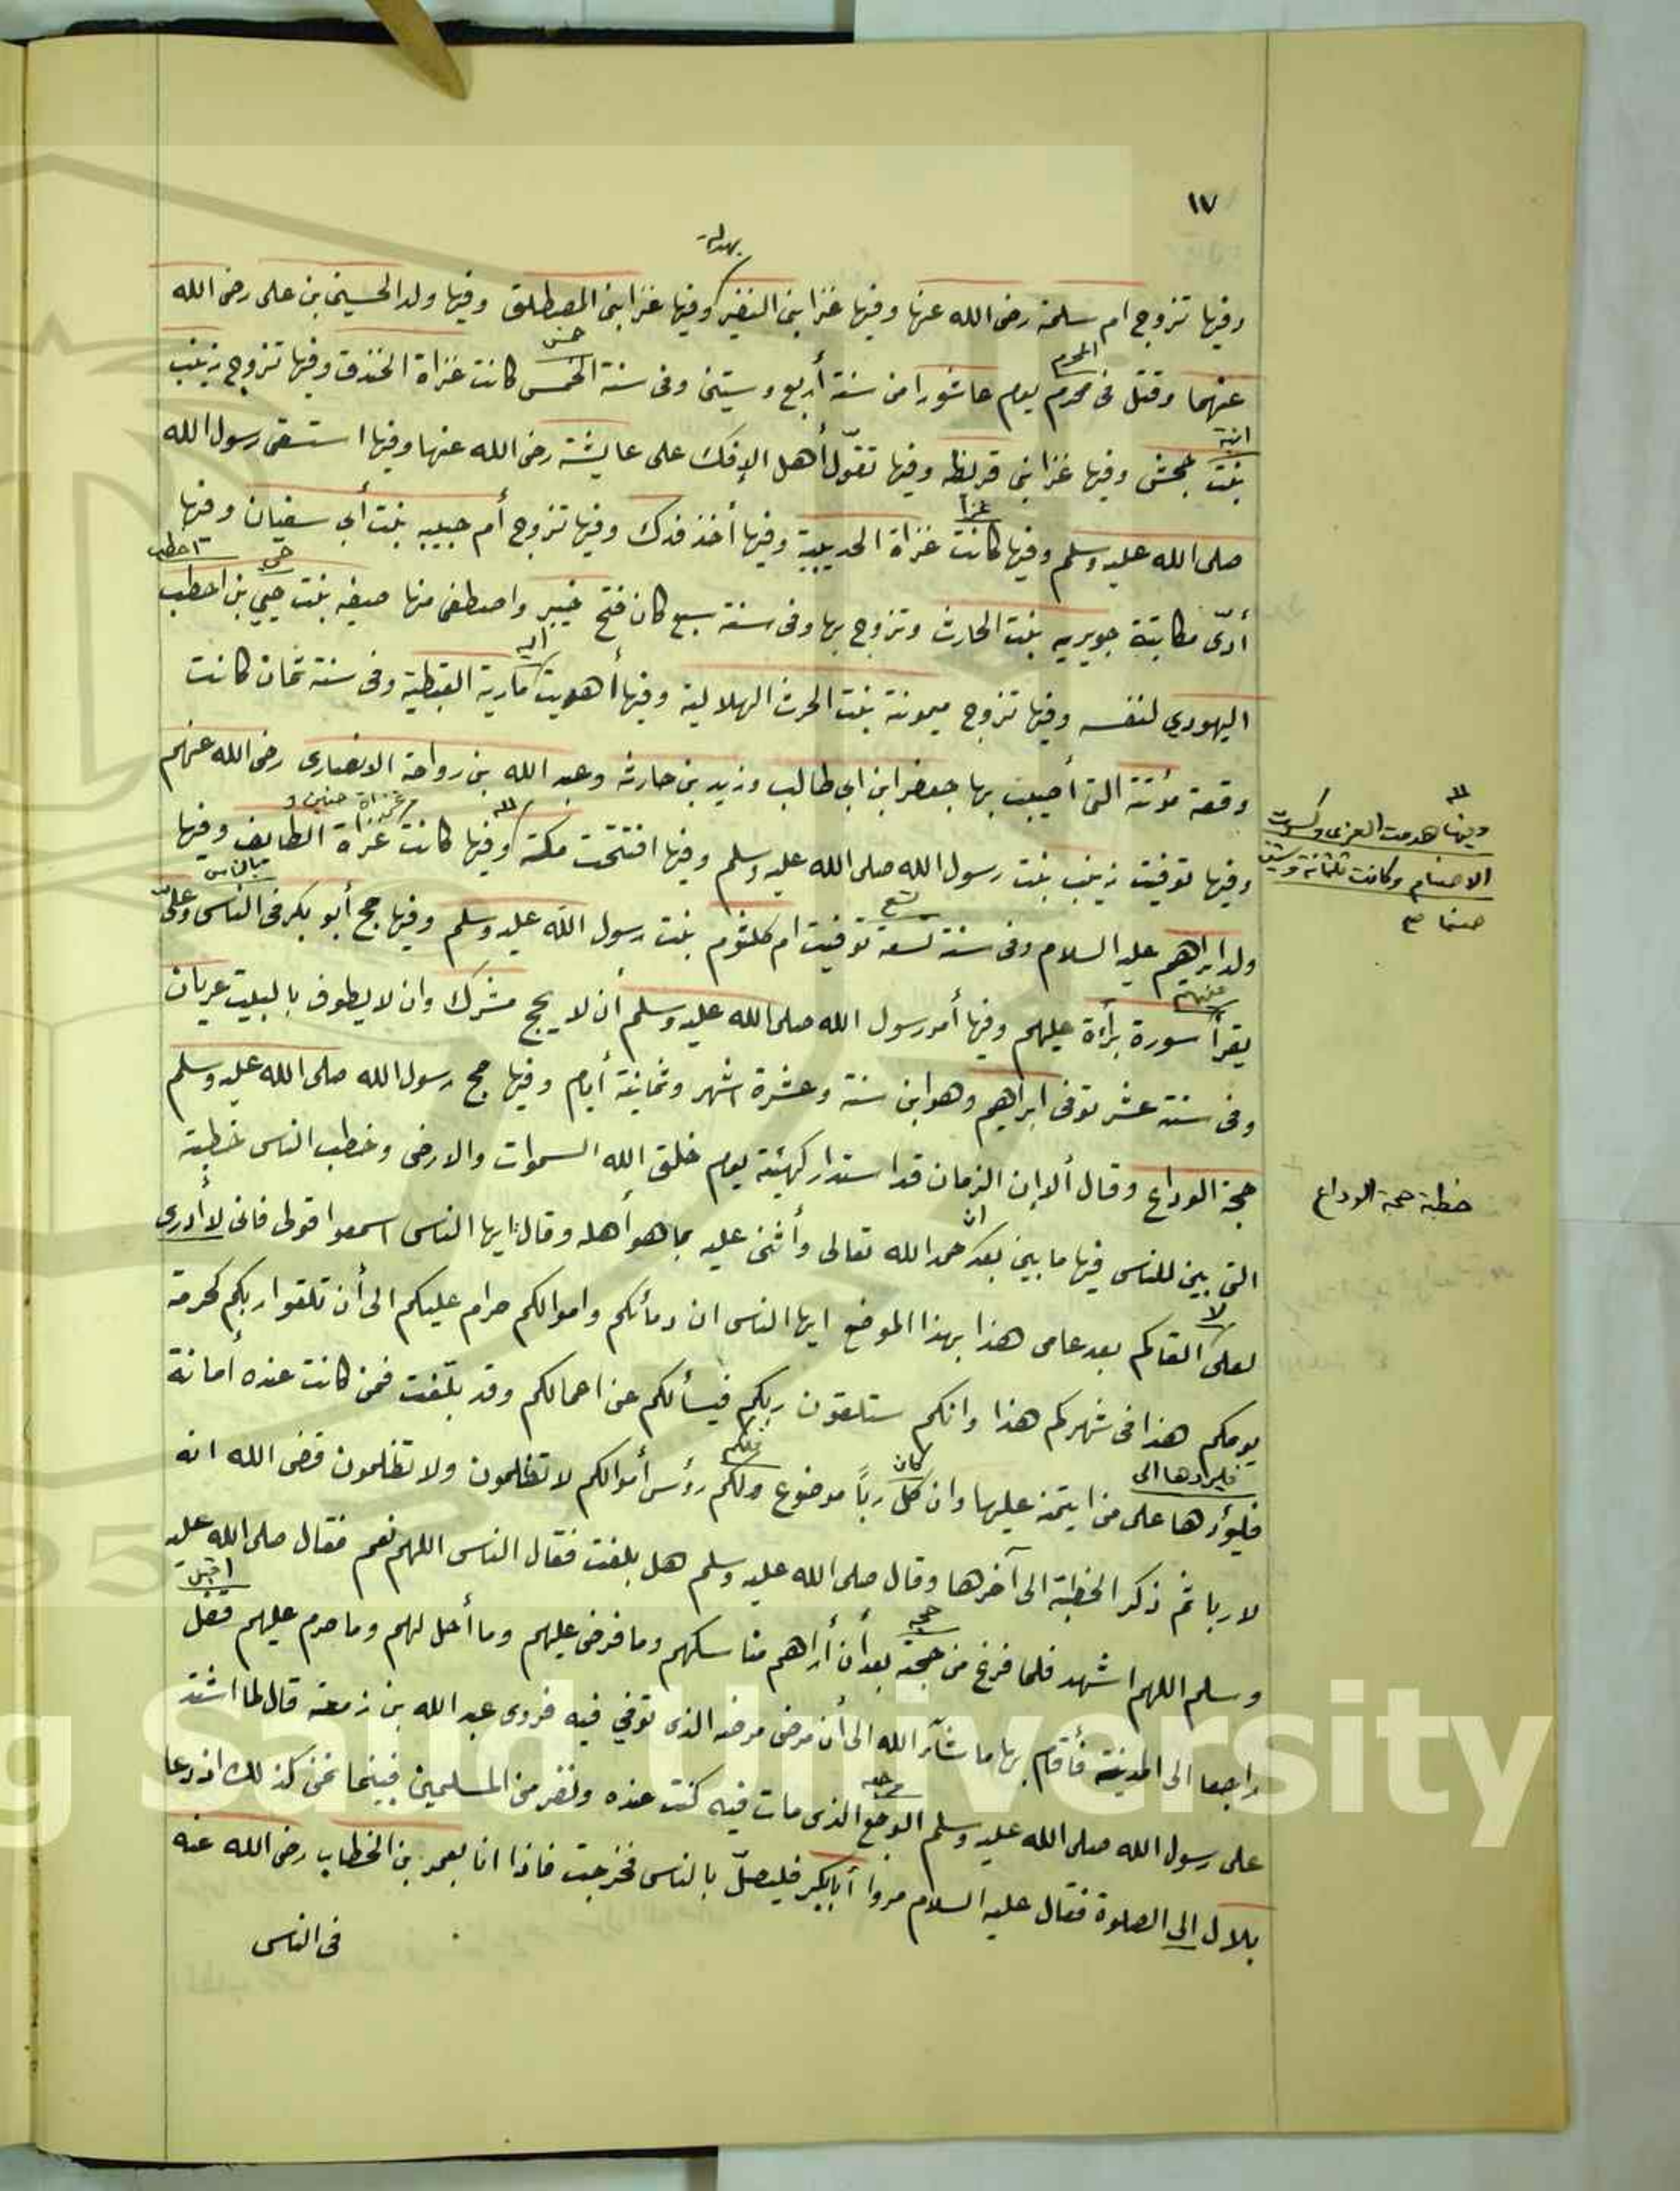 ١٧
وفيها تزوج ام سلمة رضى الله عنها وفيها غزا بنى النضير وفيها غزا بنى المصطلق وفيها ولد الحسين بن على رضى الله
المحرم
خمس
عنهما وقتل فى محرم يوم عاشورا من سنة أربع وستين وفى سنة الخمس كانت غزاة الخندق وفيها تزوج زينب
ابنة
بنت جحش وفيها غزا بنى قريظه وفيها تقوّل أهل الإفك على عايشة رضى الله عنها وفيها استسقى رسول الله
غزا
صلى الله عليه وسلم وفيها كانت غزاة الحديبية وفيها أخذ فدك وفيها تزوج أم حبيبه بنت أبي سفيان وفيها
حى
اخطب
أدّى مكاتبة جويريه بنت الحارث وتزوج بها وفى سنة سبع كان فتح خيبر واصطفى منها صفيه بنت حيي بن اخطب
اليه
اليهودى لنفسه وفيها تزوج ميمونة بنت الحرث الهلالية وفيها أهديت مارية القبطية وفى سنة ثمان كانت
وقعة مؤتة التى أصيب بها جعفر ابن ابى طالب وزيد بن حارثه وعبد الله بن رواحة الانصارى رضى الله عنهم
غزاة حنين و
وفيها توفيت زينب بنت رسول الله صلى الله عليه وسلم وفيها افتتحت مكة وفيها كانت غزاة الطايف وفيها
وفيها هدمت العزى وكسرت
الاصنام وكانت ثلثمائة وستين
صنما صح
تسع
بالناس
ولد ابراهيم عليه السلام وفى سنة تسعة توفيت ام كلثوم بنت رسول الله عليه وسلم وفيها حج أبو بكر فى الناس وعلىّ
عليهم
يقرأ سورة برأءة عليهم وفيها أمر رسول الله صلى الله عليه وسلم أن لا يحج مشرك وان لا يطوف بالبيت عريان
وفى سنة عشر توفى ابراهيم وهو ابن سنة وعشرة اشهر وثمانية أيام وفيها حج رسول الله صلى الله عليه وسلم
حجة الوداع وقال ألا إن الزمان قد استدار كهيئة يوم خلق الله السموات والارض وخطب الناس خطبة
خطبة حجة الوداع
ان
التى بين للناس فيها ما بين بعد حمد الله تعالى وأثنى عليه بما هو أهله وقال ايها الناس اسمعوا قولى فانى لا أدرى
لا
لعلى القاكم بعد عامى هذا بهذا الموضع ايها الناس ان دمائكم واموالكم حرام عليكم الى أن تلقوا ربكم كحرمة
يومكم هذا فى شهركم هذا وانكم ستلقون ربكم فيسألكم عن اعمالكم وقد بلغت فمن كانت عنده أمانة
فليردها الى
كان
فلكم
فليؤدها على من ايتمنه عليها وان كل رباً موضوع ولكم رؤس أموالكم لا تظلمون ولا تظلمون قضى الله انه
لا ربا ثم ذكر الخطبة الى آخرها وقال صلى الله عليه وسلم هل بلغت فقال الناس اللهم نعم فقال صلى الله عليه
حجه
وسلم اللهم اشهد فلما فرغ من حجته بعد أن أراهم مناسكهم وما فرض عليهم وما أحل لهم وما حرم عليهم قفل
راجعا الى المدينة فأقام بها ما شآء الله الى أن مرض مرضه الذى توفي فيه فروى عبد الله بن زمعه قال لما اشتد
على رسول الله صلى الله عليه وسلم الوجع الذى مات فيه كنت عنده ونفر من المسلمين فبينما نحن كذلك اذ دعا
بلال الى الصلوة فقال عليه السلام مروا أبابكر فليصلّ بالناس فخرجت فاذا انا بعمر بن الخطاب رضى الله عنه
فى الناس
g Saud University